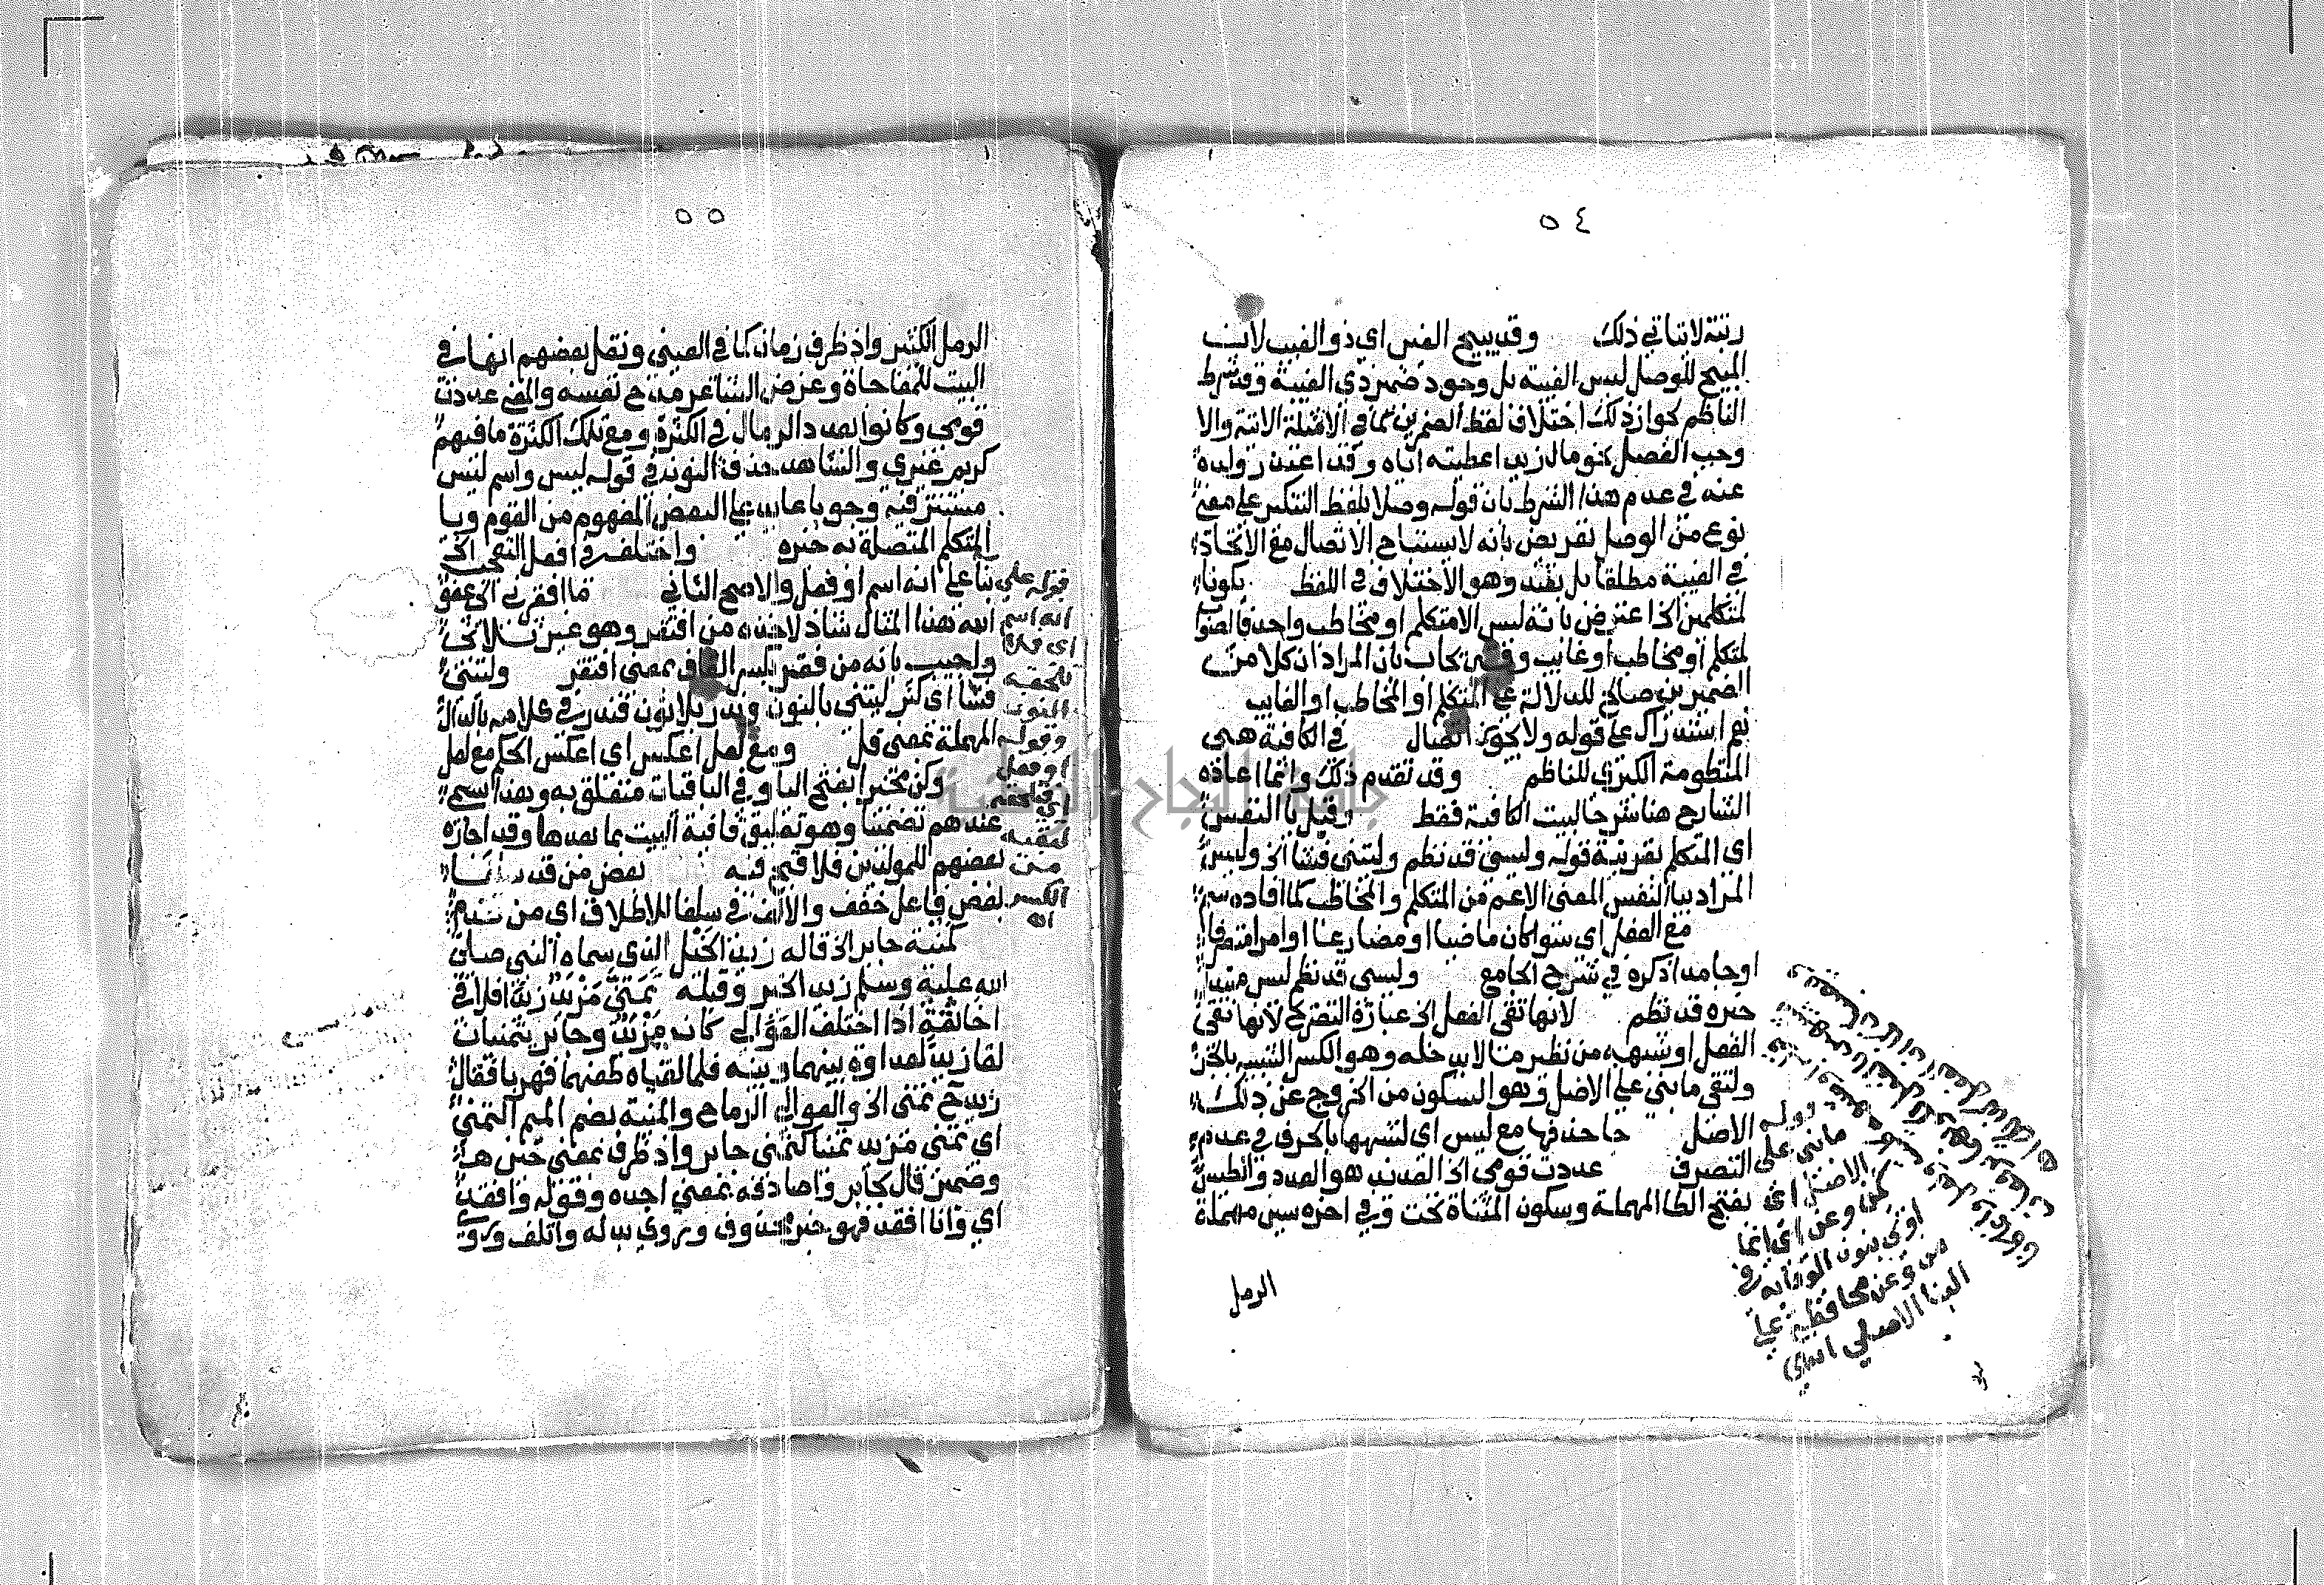 ٥٤
رتبة لا تنافي ذلك وقد يبيح الغيب اي ذو الغيب لان
المبيح للوصل ليس الغيبة بل وجود ضمير ذي الغيبة وقد شرط
الناظم لجواز ذلك اختلاف لفظ الضميرين كما في الامثلة الاتية والا
وجب الفصل نحو مال زيد اعطيته اياه وقد اعتذر ولده
عنه في عدم هذا الشرط بان قوله وصلا بلفظ التنكير على معنى
نوع من الوصل تعريض بانه لا يستباح الاتصال مع الاتحاد
في الغيبة مطلقا بل بقيد وهو الاختلاف في اللفظ يكونا
لمتكلمين الخ اعترض بانه ليس الا متكلم او مخاطب واحد فالصواب
لمتكلم او مخاطب او غائب وقد يجاب بان المراد ان كلا من
الضميرين صالح للدلالة على المتكلم او المخاطب او الغايب
نعم استدراك على قوله ولا يجوز اتصال في الكافية هي
المنظومة الكبرى للناظم وقد تقدم ذلك وانما اعاده
الشارح هنا شرحا لبيت الكافية فقط وقبل يا النفس
اي المتكلم بقرينة قوله وليسي قد نظم وليتني فشا الخ وليس
المراد بيا النفس المعنى الاعم من المتكلم والمخاطب كما افاده سم
مع الفعل اي سوا كان ماضيا او مضارعا او امرا متصرفا
او جامدا ذكره في شرح الجامع وليسي قد نظم ليس مبتدا
خبره قد نظم لانها تقي الفعل الخ عبارة التصريح لانها تقي
الفعل او شبهه من نظير ما لا يدخله وهو الكسر الشبيه بالجر
ولتقي ما بني على الاصل وهو السكون من الخروج عن ذلك
الاصل جا حذفها مع ليس اي لشبهها بالحرف في عدم
التصرف عددت قومي الخ العديد هو العدد والطيس
بفتح الطا المهملة وسكون المثناة تحت وفي اخره سين مهملة
قوله
ما بني على
الاصل اي
كمن وعن اي انما
اوتي بنون الوقاية في
من وعن محافظة على
البنا الاصلي
الرمل
٥٥
الرمل الكثير واذ ظرف زمان كما في العيني ونقل بعضهم انها في
البيت للمفاجاة وغرض الشاعر مدح نفسه والمعنى عددت
قومي وكانوا بعدد الرمال في الكثرة ومع تلك الكثرة ما فيهم
كريم غيري والشاهد حذف النون في قوله ليس واسم ليس
مستتر فيه وجوبا عايد على البعض المفهوم من القوم ويا
المتكلم المتصلة به خبره واختلف في افعل التعجب الخ
بنا على انه اسم او فعل والاصح الثاني ما افقرني الى عفو
الله هذا المثال شاذ لاخذه من افتقر وهو غير ثلاثي
واجيب بانه من فقر بكسر القاف بمعنى افتقر وليتني
فشا اي كثر ليتني بالنون وندر بلا نون فندر في كلامه بالدال
المهملة بمعنى قل ومع لعل اعكس اي اعكس الحكم مع لعل
وكن مخيرا بفتح اليا وفي الباقيات متعلق به وهذا اسمي
عندهم تضمينا وهو تعليق قافية البيت بما بعدها وقد اجازه
بعضهم للمولدين فلا قبح فيه بعض من قد سلفا
بعض فاعل خفف والالف في سلفا للاطلاق اي من تقدم
كمنية جابر الخ قاله زيد الخيل الذي سماه النبي صلى
الله عليه وسلم زيد الخير وقبله تمنى مزيد زيدا فلاقى
اخا ثقة اذا اختلف العوالي كان مزيد وجابر يتمنيان
لقا زيد لعداوة بينهما وبينه فلما لقياه طعنهما فهربا فقال
زيد ح تمنى الخ والعوالي الرماح والمنية بضم الميم التمني
اي تمنى مزيد تمنيا كتمني جابر واذ ظرف بمعنى حين هـ
وضمير قال لجابر واصادفه بمعنى اجده وقوله وافقد
اي وانا افقد فهو خبر محذوف ويروى بدله واتلف وروي
قوله على
انه اسم
اي فلا
تلحقه
النون
وقوله
او فعل
اي فتلحقه
لتقيه
من
الكسر
اهـ